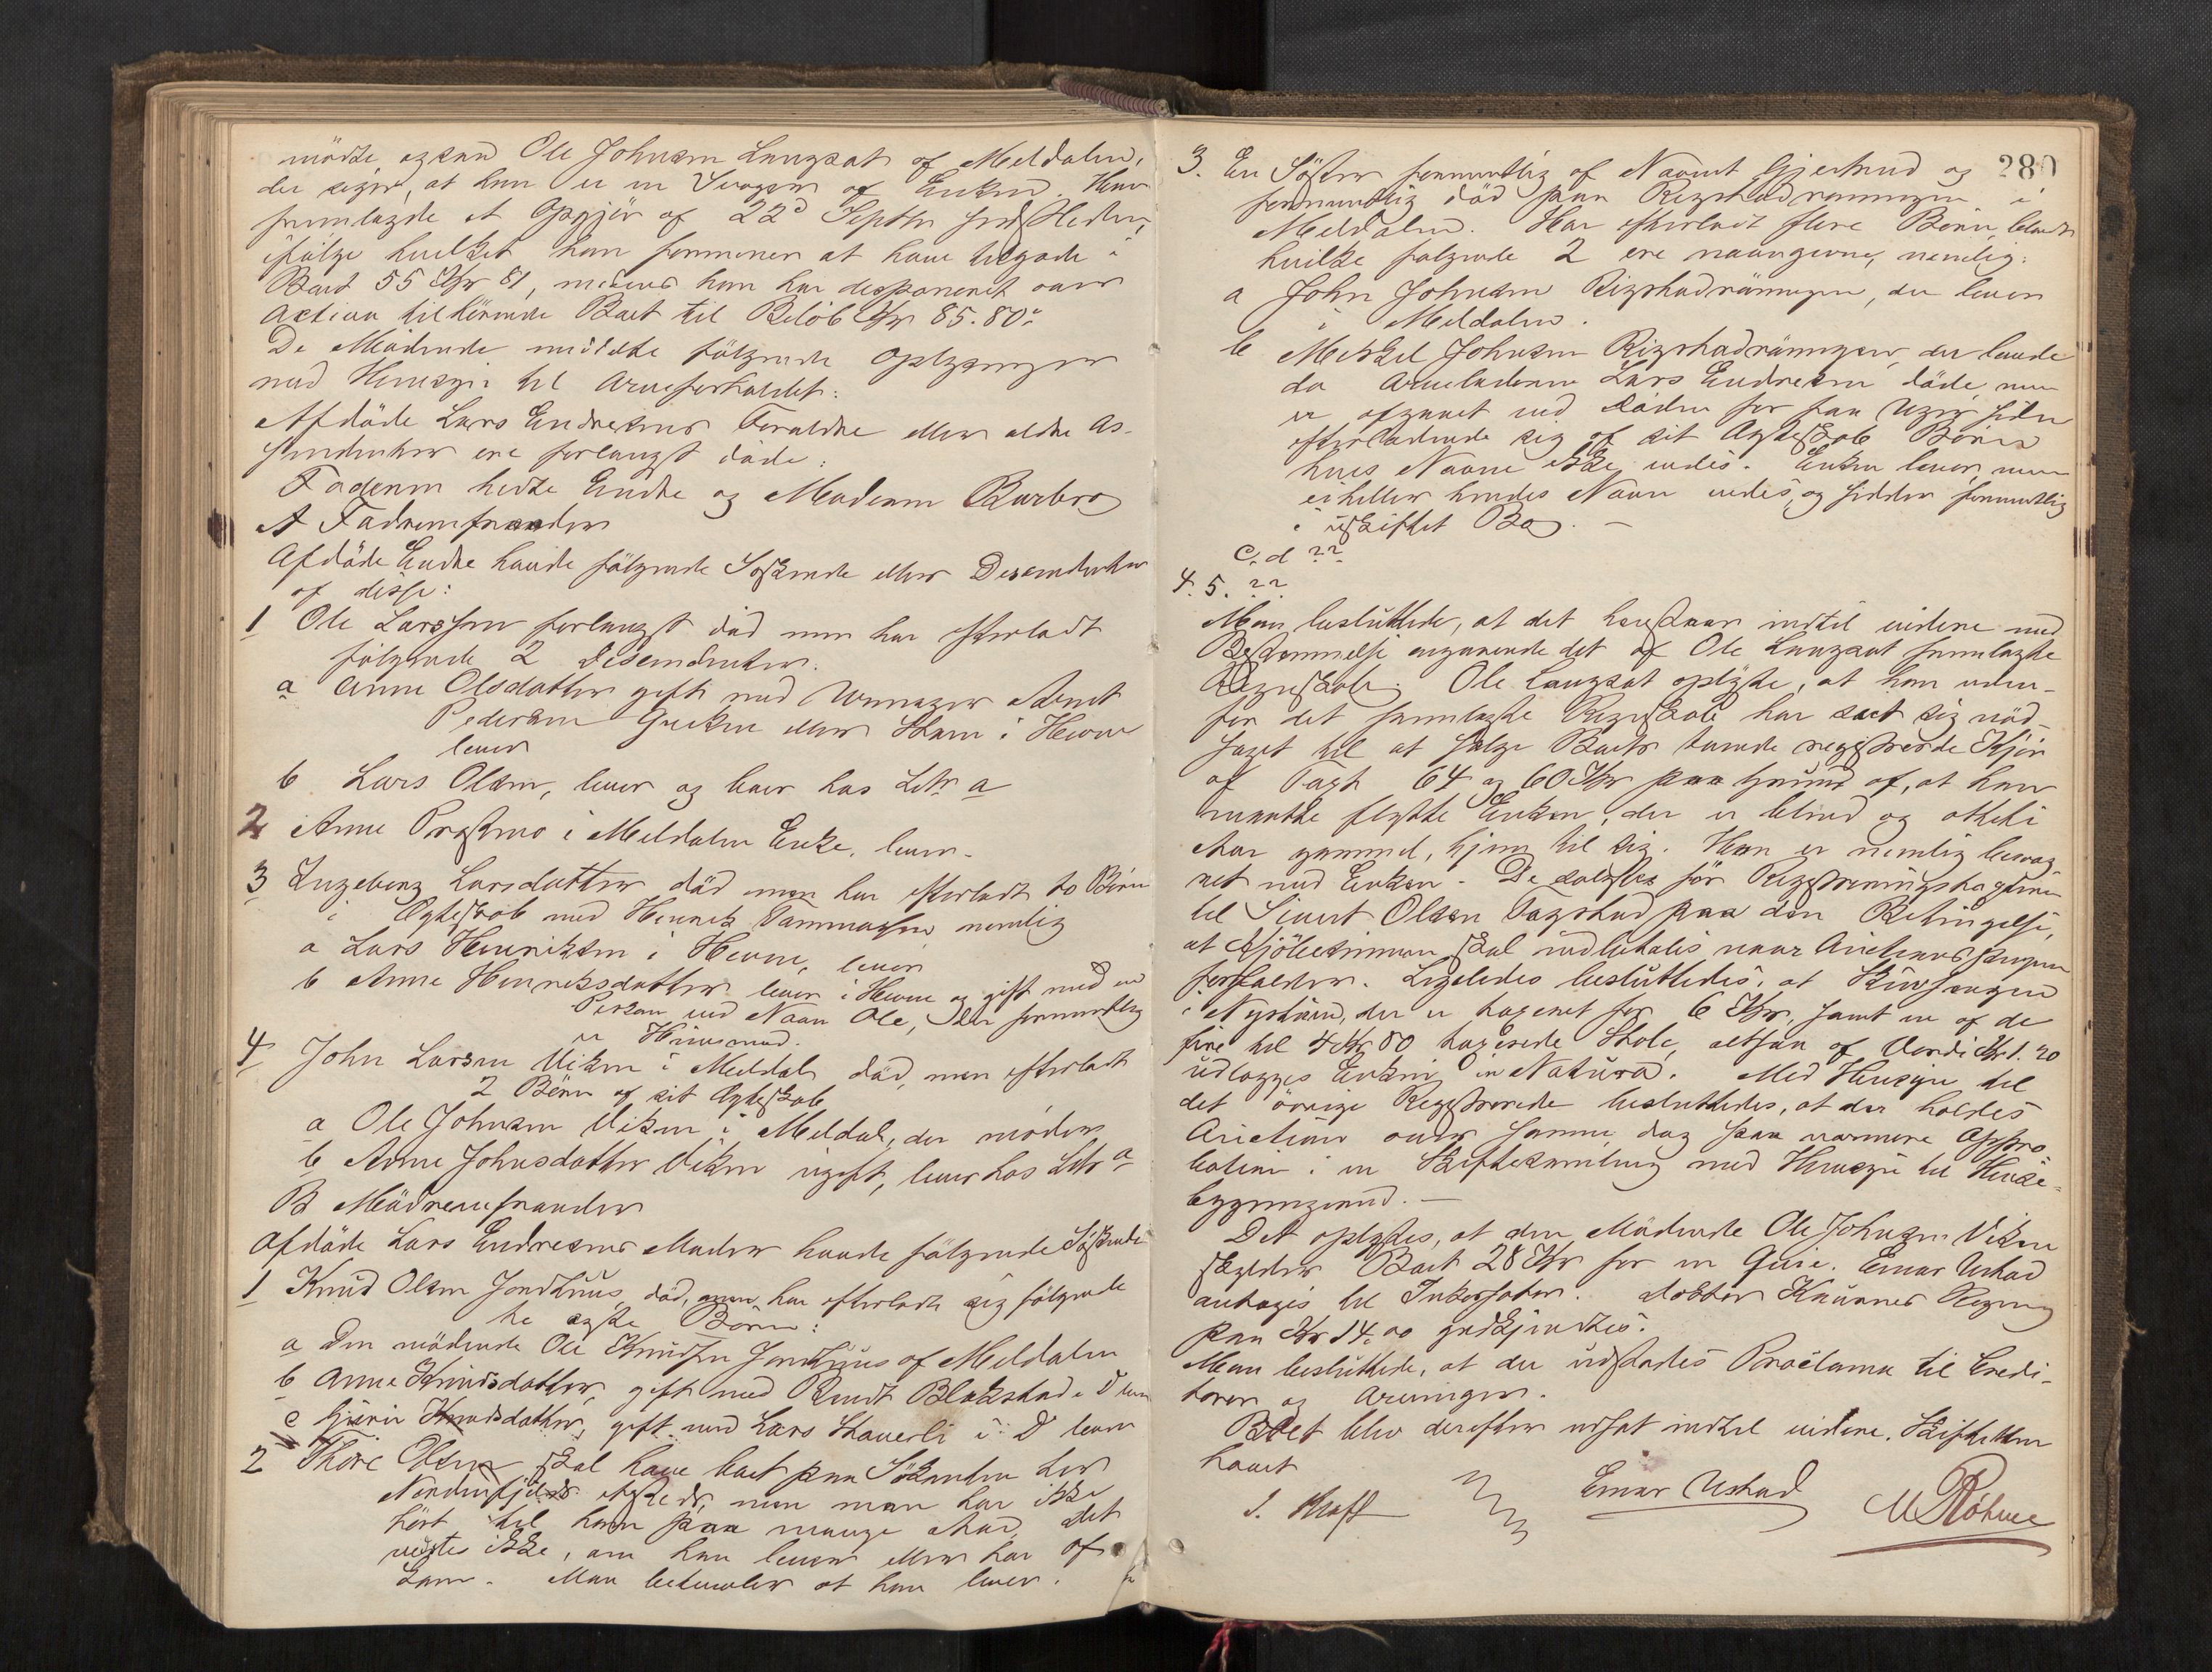 mødte ogsaa Ole Johnsen Langsæt af Meldalen,
der siger, at han er en Svoger af Enken. Han
fremlagde et Opgjør af 22d Septbr
ifølge hvilket han formener at have tilgode i
Boet 55 Kr 81, medens han har disponeret over
Activa tilhørende Boet til Beløb Kr 85.80.
De Mødende meddelte følgende Oplysninger
med Hensyn til Arveforholdet:
Afdøde Lars Endresens Forældre eller ældre As-
sendenter ere forlængst døde:
Faderen hedte Endre og Moderen Barbro
A Fædrenefrænder
Afdøde Endre havde følgende Søskende eller Descendenter
af disse:
1 Ole Larssen forlængst død men har efterladt
følgende 2 Descendenter.
a Anne Olsdatter gift med Arnt
Pedersen eller i Hevne
lever
b Lars Olsen, lever og boer hos Litr a
2 Anne i Meldalen Enke, lever.
3 Ingeborg Larsdatter død men har efterladt to Børn
i Ægteskab med Henrik Tommassen nemlig
a Lars Henriksen i Hevne, lever
b Anne Henriksdatter lever i Hevne og gift med en
Person ved Navn Ole, der formentlig
er Huusmand.
4 John Larsen Viken i Meldal død, men efterladt
2 Børn af sit Ægteskab
a Ole Johnsen Viken i Meldal, der møder
b Anne Johnsdatter Viken ugift, lever hos Litr a
B Mødrenefrænder
Afdøde Lars Endresens Moder havde følgende Søskende
1 Knud Olsen Jordhuus, død, men har efterladt sig følgende
tre ægte Børn:
a Den mødende Ole Knudsen Jordhuus af Meldalen
b Anne Knudsdatter, gift med Bendt Blokstad i D lever
c Guri Knudsdatter, gift med Lars i D lever
2 Thore Olsen skal have boet paa
men man har ikke
hørt til ham paa mange Aar. Det
vistes ikke, om han lever eller har Af-
kom. Man at han lever.
280
3. En Søster formentlig af Navnet Gjertrud og
formentlig død paa Rigstadrønningen i
Meldalen. Har efterladt flere Børn, blandt
hvilke følgende 2 ere navngivne, nemlig:
a John Johnsen Rigstadrønningen, der lever
i Meldalen.
b Mikkel Johnsen Rigstadrønningen, der levede
da Arveladeren Lars Endresen døde, men
er afgaaet ved Døden for faa Uger siden
efterladende sig af sit Ægteskab Børn
hvis Navne ikke vides. Enken lever, men
ei heller hendes Navn vides, og sidder formentlig
i uskiftet Bo. —
c. d ??
4. 5. ??
Man besluttede, at det henstaar indtil videre med
Bestemmelse angaaende det af Ole Langsæt fremlagte
Regnskab. Ole Langsæt oplyste, at han uden-
for det fremlagte Regnskab har seet sig nød-
saget til at sælge Boets tvende registrerede Kjør
af Taxt 64 og 60 Kr paa Grund af, at han
maatte flytte Enken, der er blind og otteti
Aar gammel, hjem til sig. Han er nemlig besvog
ret med Enken. De solgtes før Registreringsforretn
til Sivert Olsen paa den Betingelse,
at Kjøbesummen skal indbetales naar Auctionssummen
forfalder. Ligeledes besluttedes, at
i Nystuen, der er taxeret for 6 Kr, samt en af de
fire til 4 Kr 80 taxerede Stole, altsaa af Værdi Kr 1.20
udlægges Enken in Natura. Med Hensyn til
det øvrige Registrerede besluttedes, at der holdes
Auction over samme, dog paa nærmere Appro-
bation i en Skiftesamling med Hensyn til Huse-
bygningerne. —
Det oplystes, at den Mødende Ole Johnsen Viken
skylder Boet 28 Kr for en Qvie. Einar Ustad
antoges til Inkassator. Doktor Regning
paa Kr 14.00 godkjendtes.
Man besluttede, at der udstedes Proclama til Credi-
torer og Arvinger.
Boet blev derefter udsat indtil videre. Skifteretten
hævet
Einar Ustad